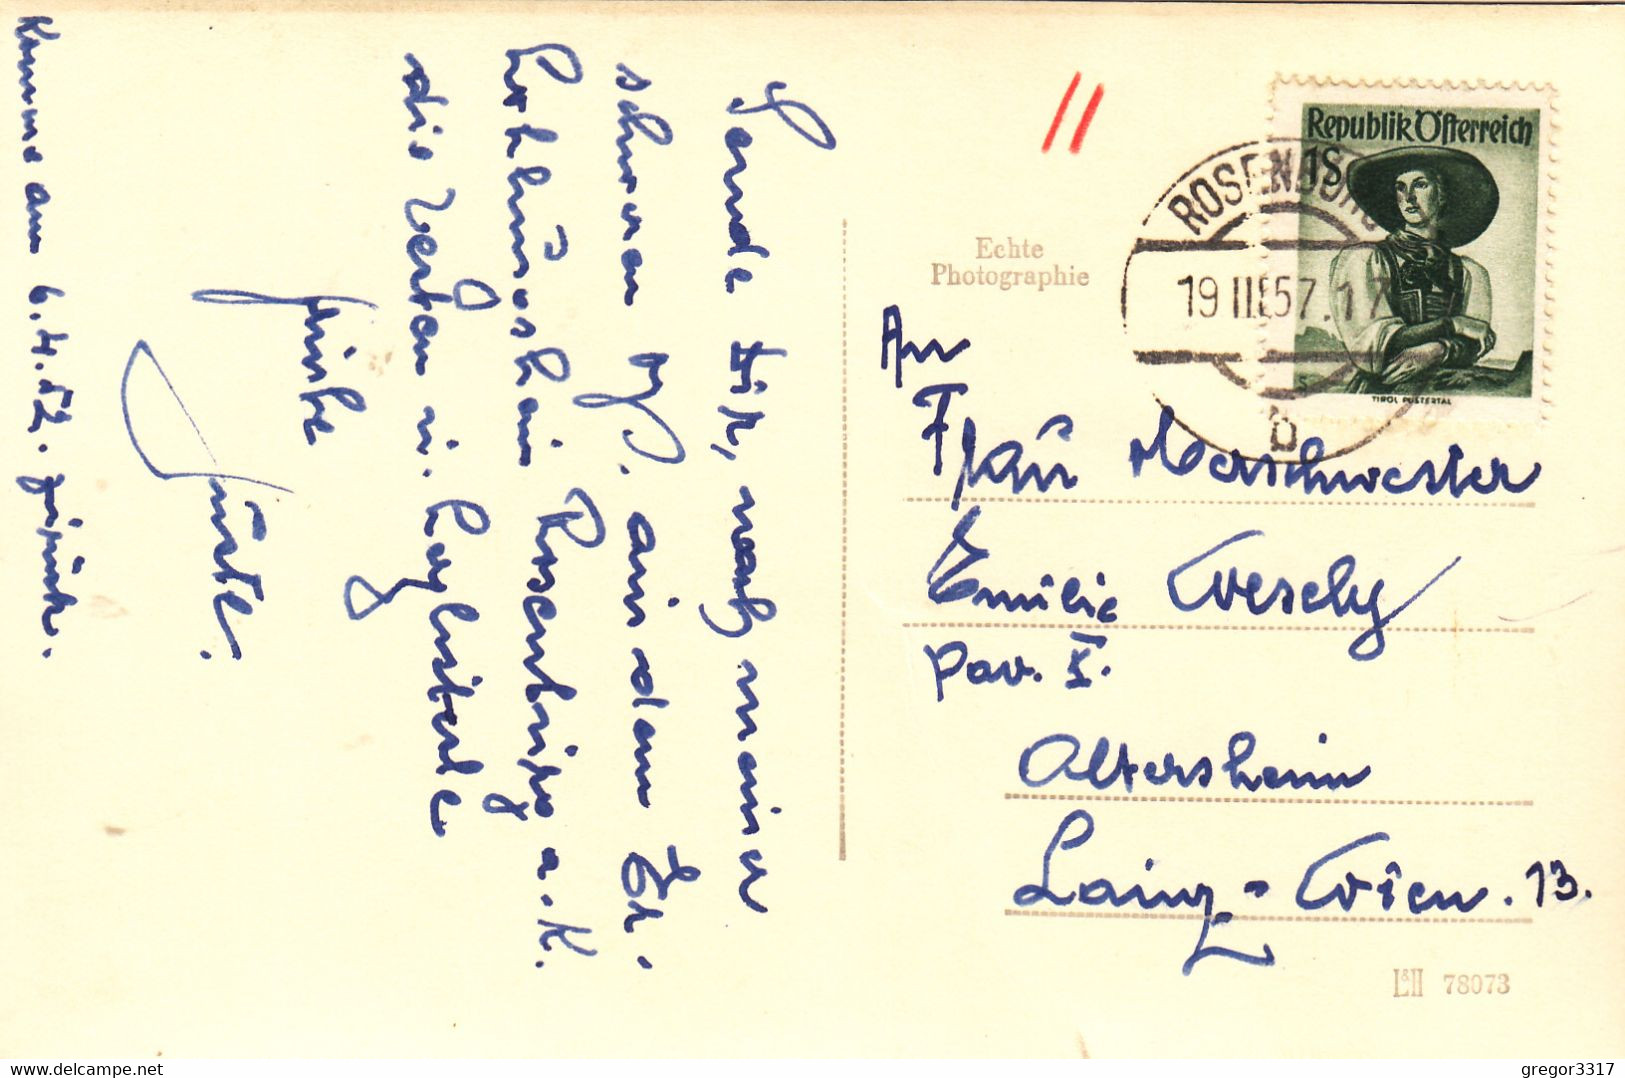 Sende Dir, nach meiner
schweren OP. aus dem Er-
holungsheim Rosenburg a. K.
die besten u. herzlichste
Grüße
Komme am 6.4.57. zurück.
Echte
Photographie
Republik Österreich
1S
TIROL PUSTERTAL
ROSENBURG
19 III 57. 17
b
An
Frau Oberschwester
Emilie Wesely
Pav. X.
Altersheim
Lainz - Wien. 13.
L&H 78073
gregor3317